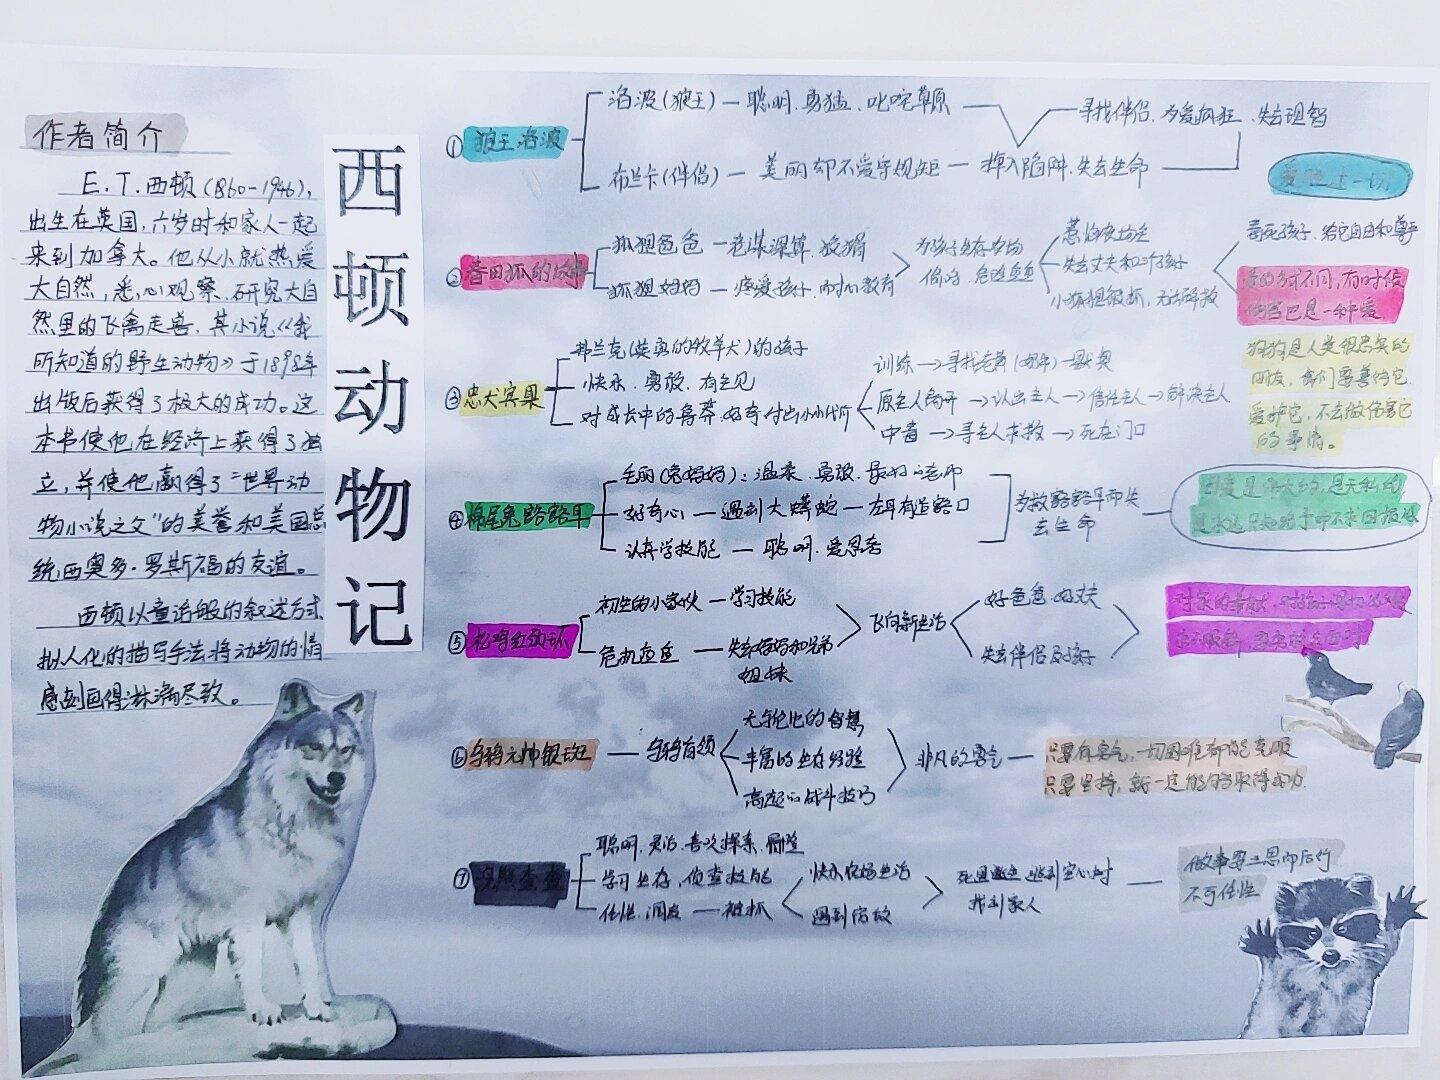 作者简介
E.T.西顿(1860-1946),
出生在英国,六岁时和家人一起
来到加拿大。他从小就热爱
大自然,悉心观察、研究大自
然里的飞禽走兽,其小说《我
所知道的野生动物》于1898年
出版后获得了极大的成功。这
本书使他在经济上获得了独
立,并使他赢得了“世界动
物小说之父”的美誉和美国总
统西奥多·罗斯福的友谊。
西顿以童话般的叙述方式
拟人化的描写手法将动物的情
感刻画得淋漓尽致。
西顿动物记
①狼王洛波
洛波(狼王)—聪明、勇猛、叱咤草原
寻找伴侣、为爱疯狂、失去理智
布兰卡(伴侣)—美丽却不爱守规矩—掉入陷阱、失去生命
爱胜过一切
②春田狐的故事
狐狸爸爸—老谋深算、狡猾
狐狸妈妈—疼爱孩子、耐心教育
为孩子生存农场
偷鸡、危险重重
惹怕农场主
失去丈夫和三个孩子
小狐狸被抓,无法解救
毒死孩子、给它自由和尊严
爱的方式不同,有时候
伤害也是一种爱
③忠犬宾果
弗兰克(英勇的牧羊犬)的孩子
快乐、勇敢、有主见
对成长中的鲁莽、好奇付出小小代价
训练→寻找老黄(奶牛)→默契
原主人离开→认出主人→信任主人→解决主人
中毒→寻主人求救→死在门口
狗狗是人类很忠实的
朋友,我们要善待它
爱护它,不去做伤害它
的事情。
④棉尾兔豁豁耳
毛丽(兔妈妈):温柔、勇敢、最好的老师
好奇心—遇到大蟒蛇—左耳有道豁口
认真学技能—聪明、爱思考
为救豁豁耳而失
去生命
母爱是伟大的,是无私的
是永远只知给予而不求回报的
⑤松鸡红颈环
初生的小家伙—学习技能
危机重重—失去妈妈和兄弟
姐妹
飞向新生活
好爸爸、好丈夫
失去伴侣及孩子
⑥乌鸦元帅银斑—乌鸦首领
无与伦比的智慧
丰富的生存经验
高超的战斗技巧
非凡的勇气—
只要有勇气,一切困难都能克服
只要坚持,就一定能够取得成功.
⑦浣熊查查
聪明、灵活、喜欢探索、冒险
学习生存,侦查技能
任性、调皮—被抓
快乐农场生活
遇到猎狗
死里逃生,逃到空心树
找到家人
做事要三思而后行
不可任性